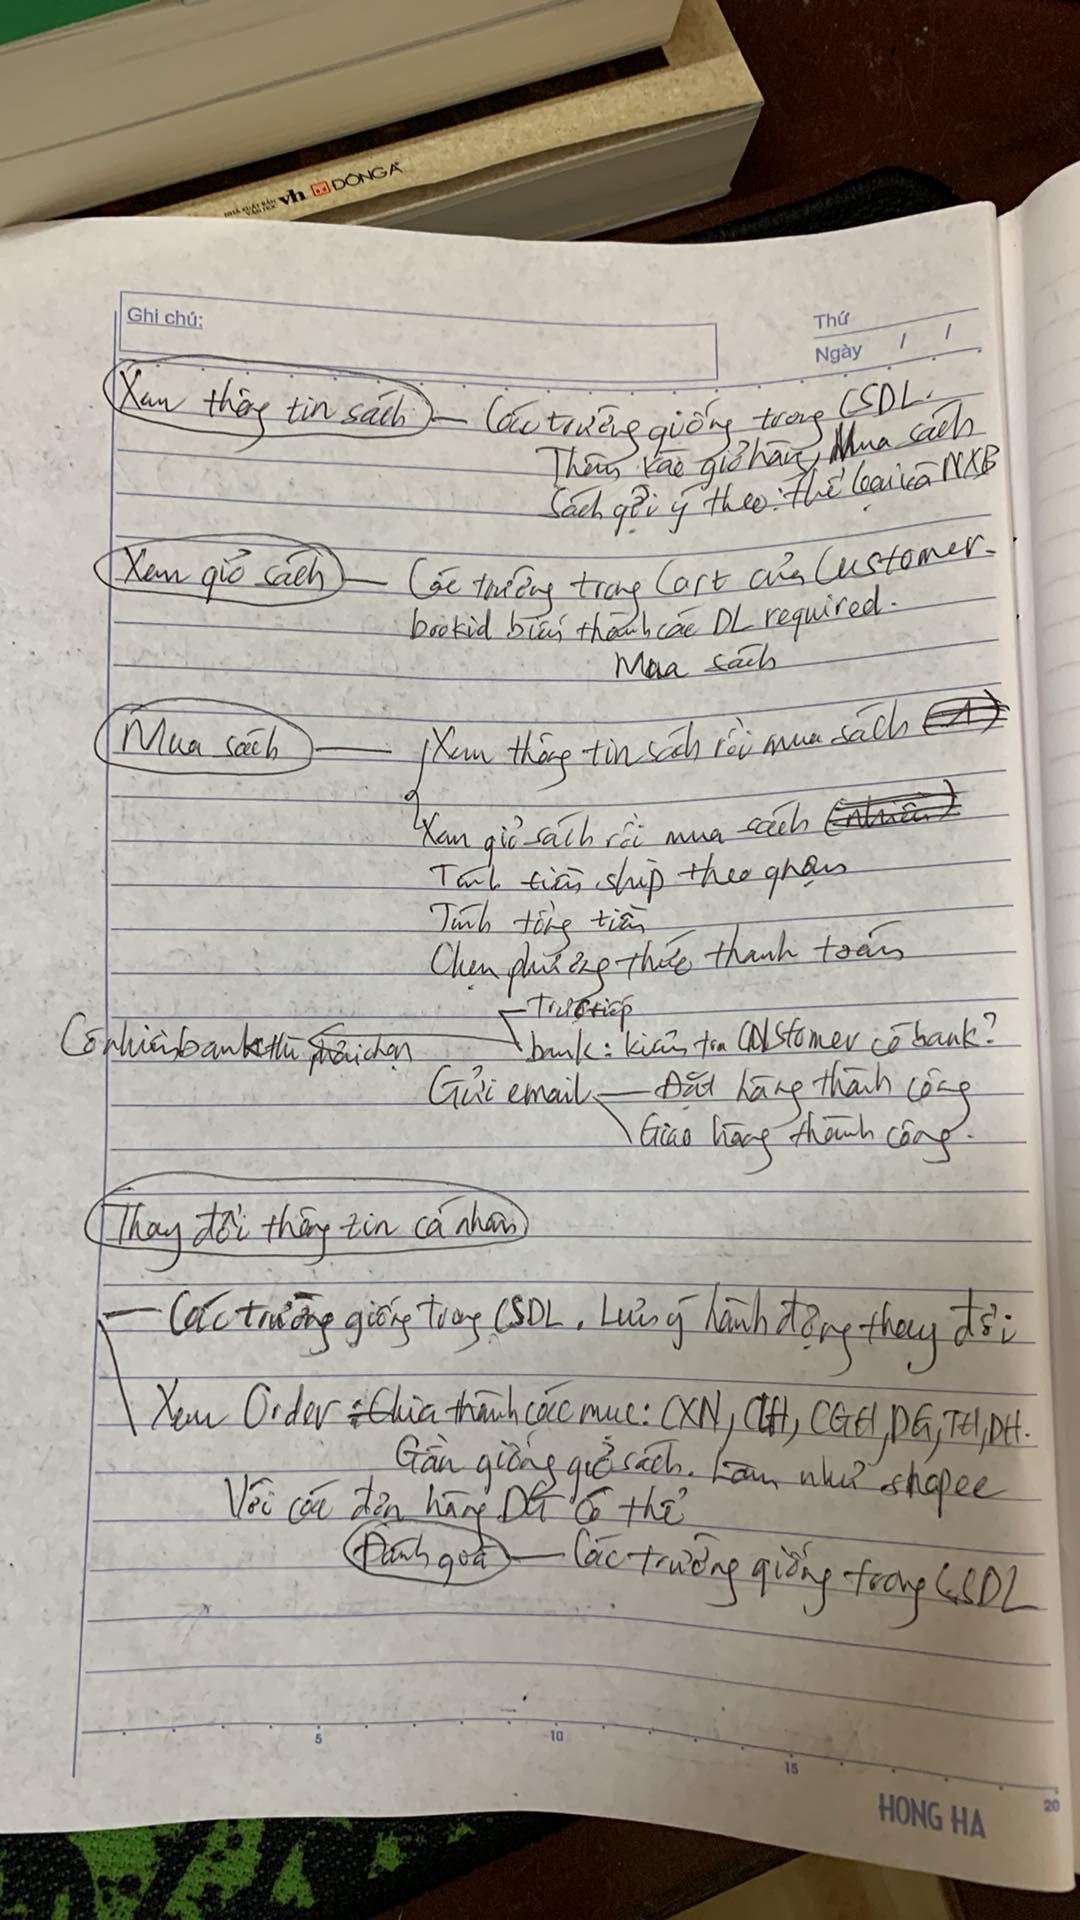 NHÀ XUẤT BẢN
VĂN HỌC
vh ĐÔNG A
Ghi chú:
Thứ
Ngày / /
Xem thông tin sách — Các trường giống trong CSDL.
Thêm vào giỏ hàng, Mua sách
Sách gợi ý theo: thể loại và NXB
Xem giỏ sách — Các trường trong Cart của Customer.
bookid biến thành các DL required.
Mua sách
Mua sách — Xem thông tin sách rồi mua sách
Xem giỏ sách rồi mua sách (nhiều)
Tính tiền ship theo quận
Tính tổng tiền
Chọn phương thức thanh toán
Trực tiếp
Có nhiều bank thì phải chọn
bank: kiểm tra Customer có bank?
Gửi email — Đặt hàng thành công
Giao hàng thành công.
Thay đổi thông tin cá nhân
— Các trường giống trong CSDL. Lưu ý hành động thay đổi
Xem Order: Chia thành các mục: CXN, CLH, CGH, DG, TH, DH.
Gần giống giỏ sách. Làm như shopee
Với các đơn hàng DG có thể
Đánh giá — Các trường giống trong CSDL
5
10
15
20
HONG HA